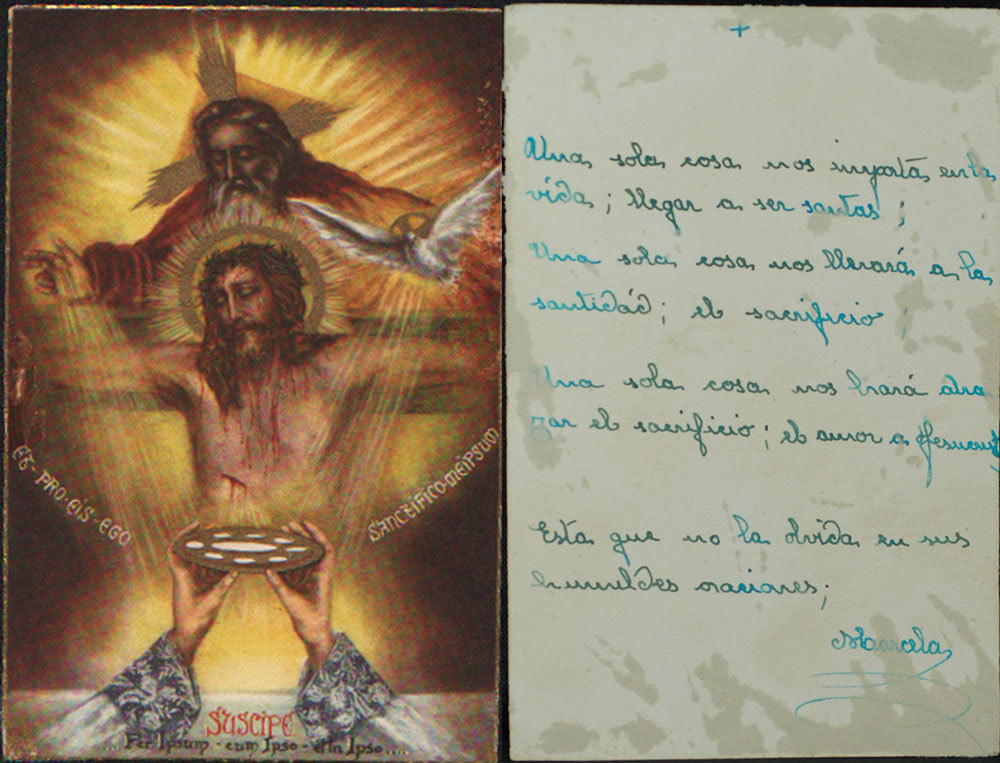 ET · PRO · EIS · EGO
SANCTIFICO · MEIPSUM
SUSCIPE
.... Per Ipsum - cum Ipso - et in Ipso ....
+
Una sola cosa nos importa en la
vida; llegar a ser santas;
Una sola cosa nos llevará a la
santidad; el sacrificio;
Una sola cosa nos hará abra
zar el sacrificio; el amor a Jesucrist
Esta que no la olvida en sus
humildes oraciones;
Marcela